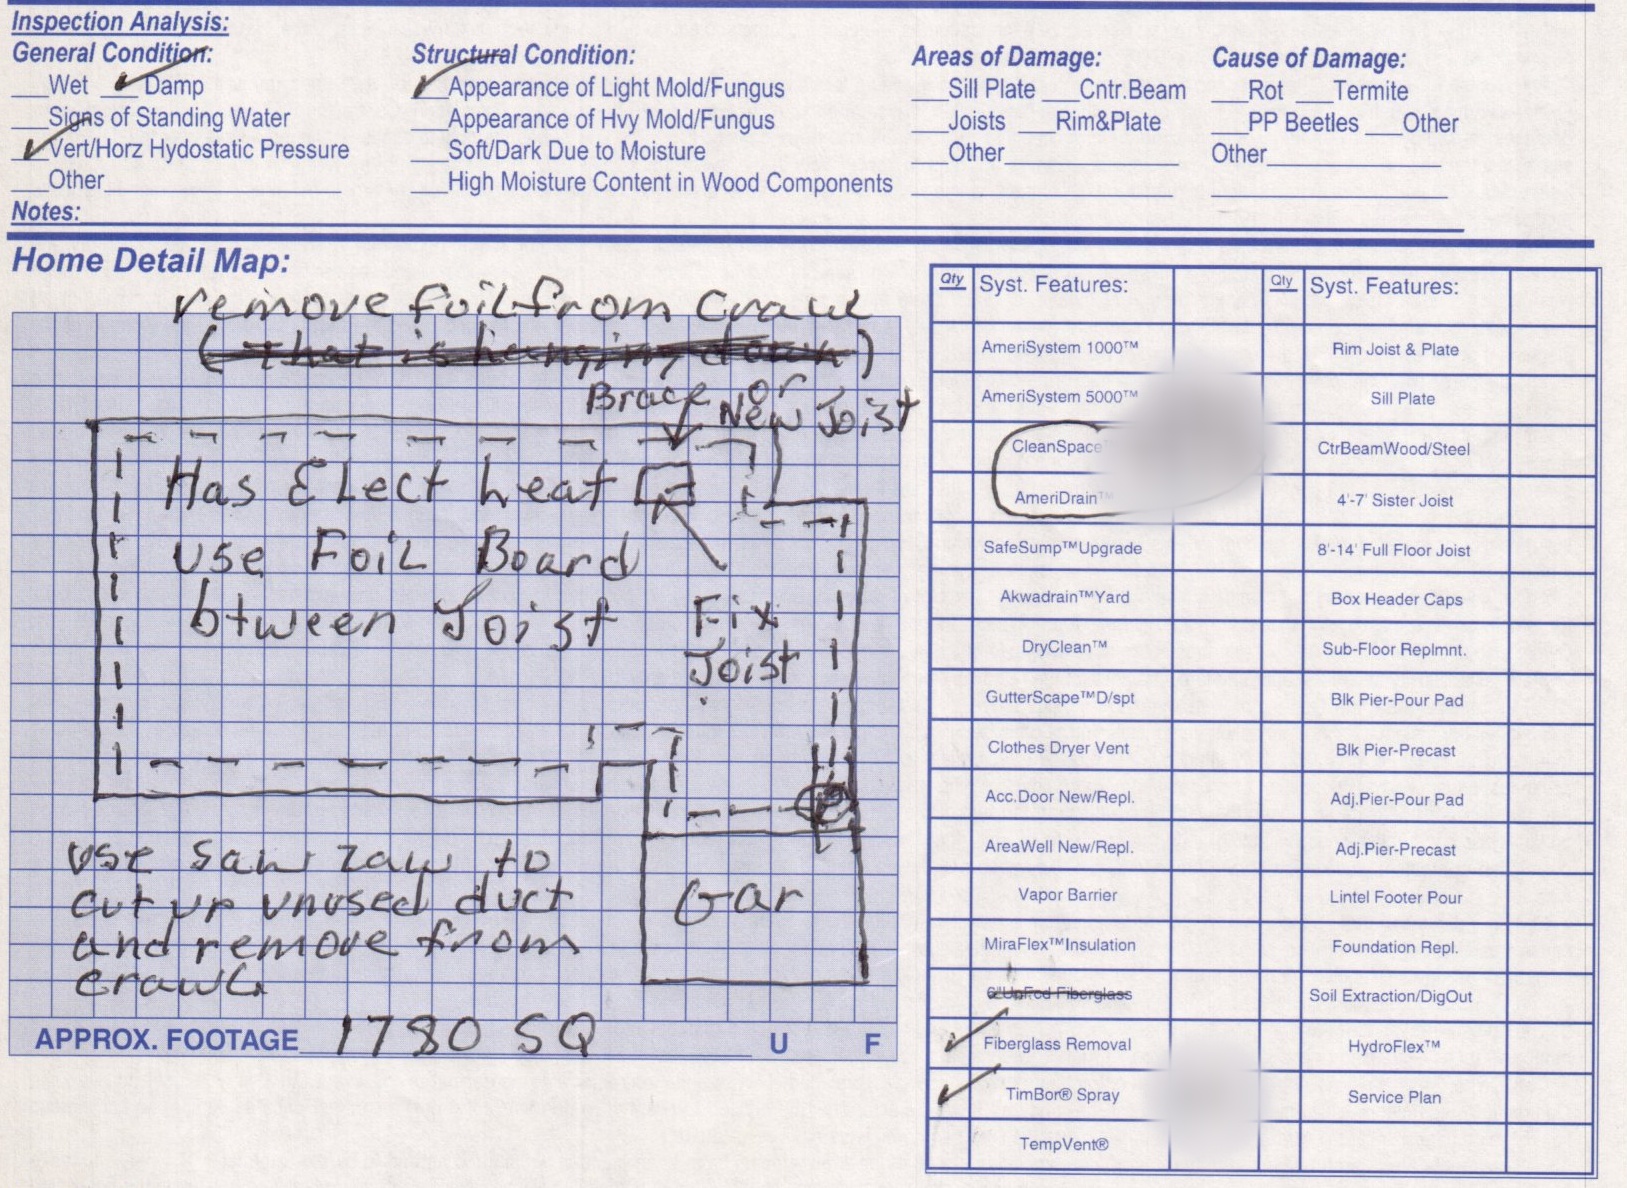 Inspection Analysis:
General Condition:
Structural Condition:
Areas of Damage:
Cause of Damage:
___Wet ___Damp
___Appearance of Light Mold/Fungus
___Sill Plate ___Cntr.Beam
___Rot ___Termite
___Signs of Standing Water
___Appearance of Hvy Mold/Fungus
___Joists ___Rim&Plate
___PP Beetles ___Other
___Vert/Horz Hydostatic Pressure
___Soft/Dark Due to Moisture
___Other
Other
___Other
___High Moisture Content in Wood Components
Notes:
Home Detail Map:
remove foil from crawl
(that is hanging down)
Brace or
New Joist
Has Elect heat
use Foil Board
btween Joist
Fix
Joist
use saw zaw to
cut up unused duct
and remove from
crawl
Gar
APPROX. FOOTAGE 1780 SQ U F
Qty Syst. Features: Qty Syst. Features:
AmeriSystem 1000™ Rim Joist & Plate
AmeriSystem 5000™ Sill Plate
CleanSpace CtrBeamWood/Steel
AmeriDrain™ 4'-7' Sister Joist
SafeSump™Upgrade 8'-14' Full Floor Joist
Akwadrain™Yard Box Header Caps
DryClean™ Sub-Floor Replmnt.
GutterScape™D/spt Blk Pier-Pour Pad
Clothes Dryer Vent Blk Pier-Precast
Acc.Door New/Repl. Adj.Pier-Pour Pad
AreaWell New/Repl. Adj.Pier-Precast
Vapor Barrier Lintel Footer Pour
MiraFlex™Insulation Foundation Repl.
6"UnFcd Fiberglass Soil Extraction/DigOut
Fiberglass Removal HydroFlex™
TimBor® Spray Service Plan
TempVent®